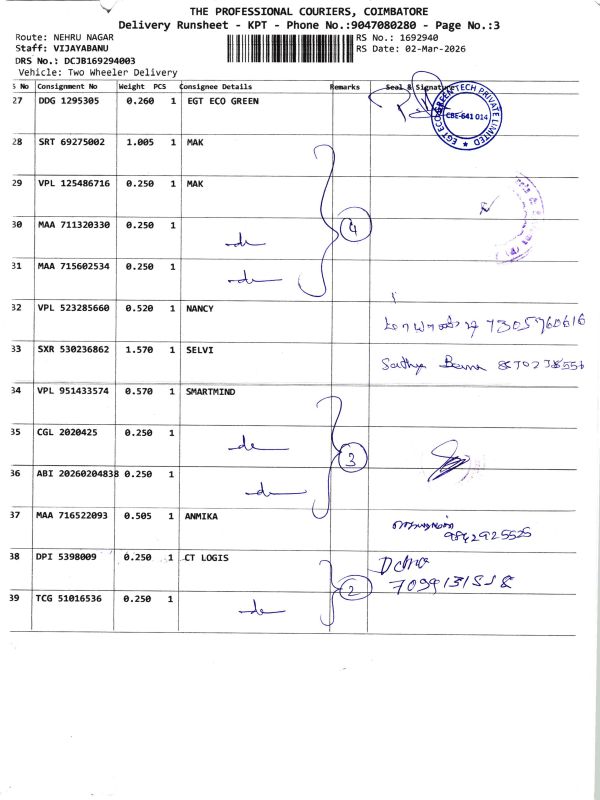 THE PROFESSIONAL COURIERS, COIMBATORE
Delivery Runsheet - KPT - Phone No.:9047080280 - Page No.:3
Route: NEHRU NAGAR
RS No.: 1692940
Staff: VIJAYABANU
RS Date: 02-Mar-2026
DRS No.: DCJB169294003
Vehicle: Two Wheeler Delivery
S No Consignment No Weight PCS Consignee Details Remarks Seal & Signature
27 DDG 1295305 0.260 1 EGT ECO GREEN
EGT ECO GREEN TECH PRIVATE LIMITED
CBE-641 014
28 SRT 69275002 1.005 1 MAK
29 VPL 125486716 0.250 1 MAK
30 MAA 711320330 0.250 1 de
4
31 MAA 715602534 0.250 1 de
32 VPL 523285660 0.520 1 NANCY
7305760616
33 SXR 530236862 1.570 1 SELVI
Sathya
34 VPL 951433574 0.570 1 SMARTMIND
35 CGL 2020425 0.250 1 de
3
36 ABI 20260204838 0.250 1 de
37 MAA 716522093 0.505 1 ANMIKA
9842925525
38 DPI 5398009 0.250 1 CT LOGIS
2
39 TCG 51016536 0.250 1 de